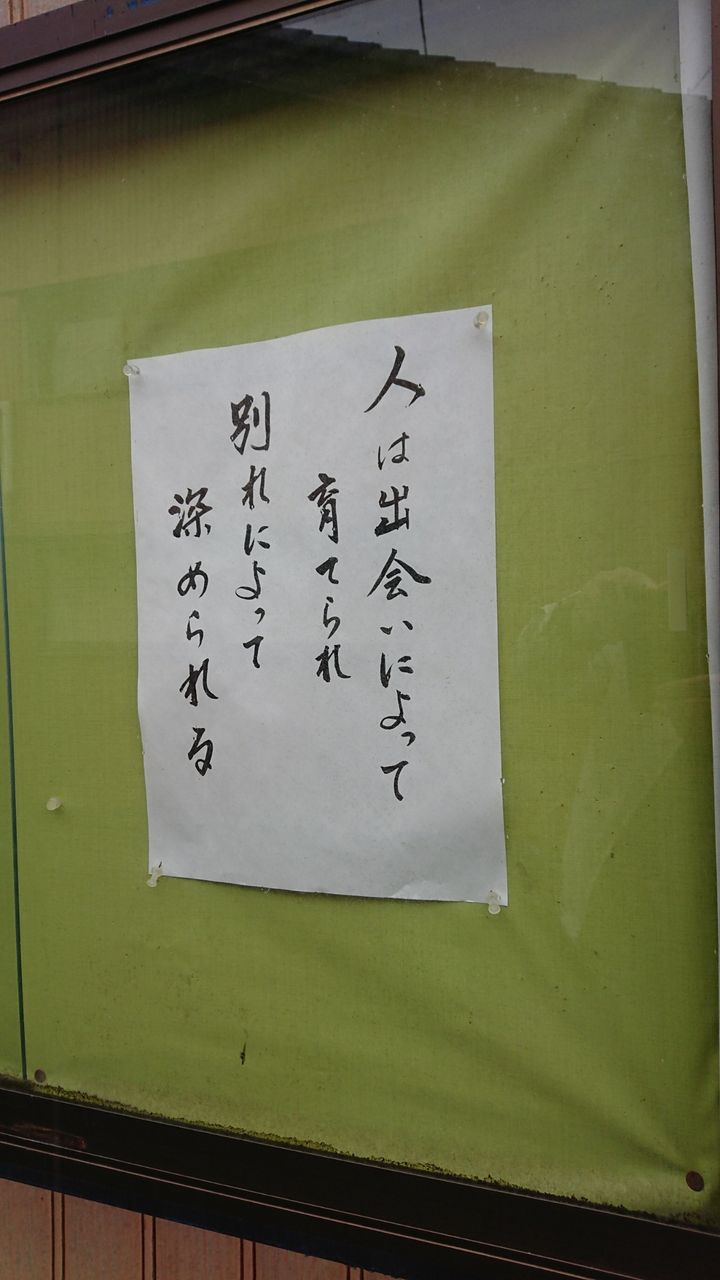 人は出会いによって
育てられ
別れによって
深められる